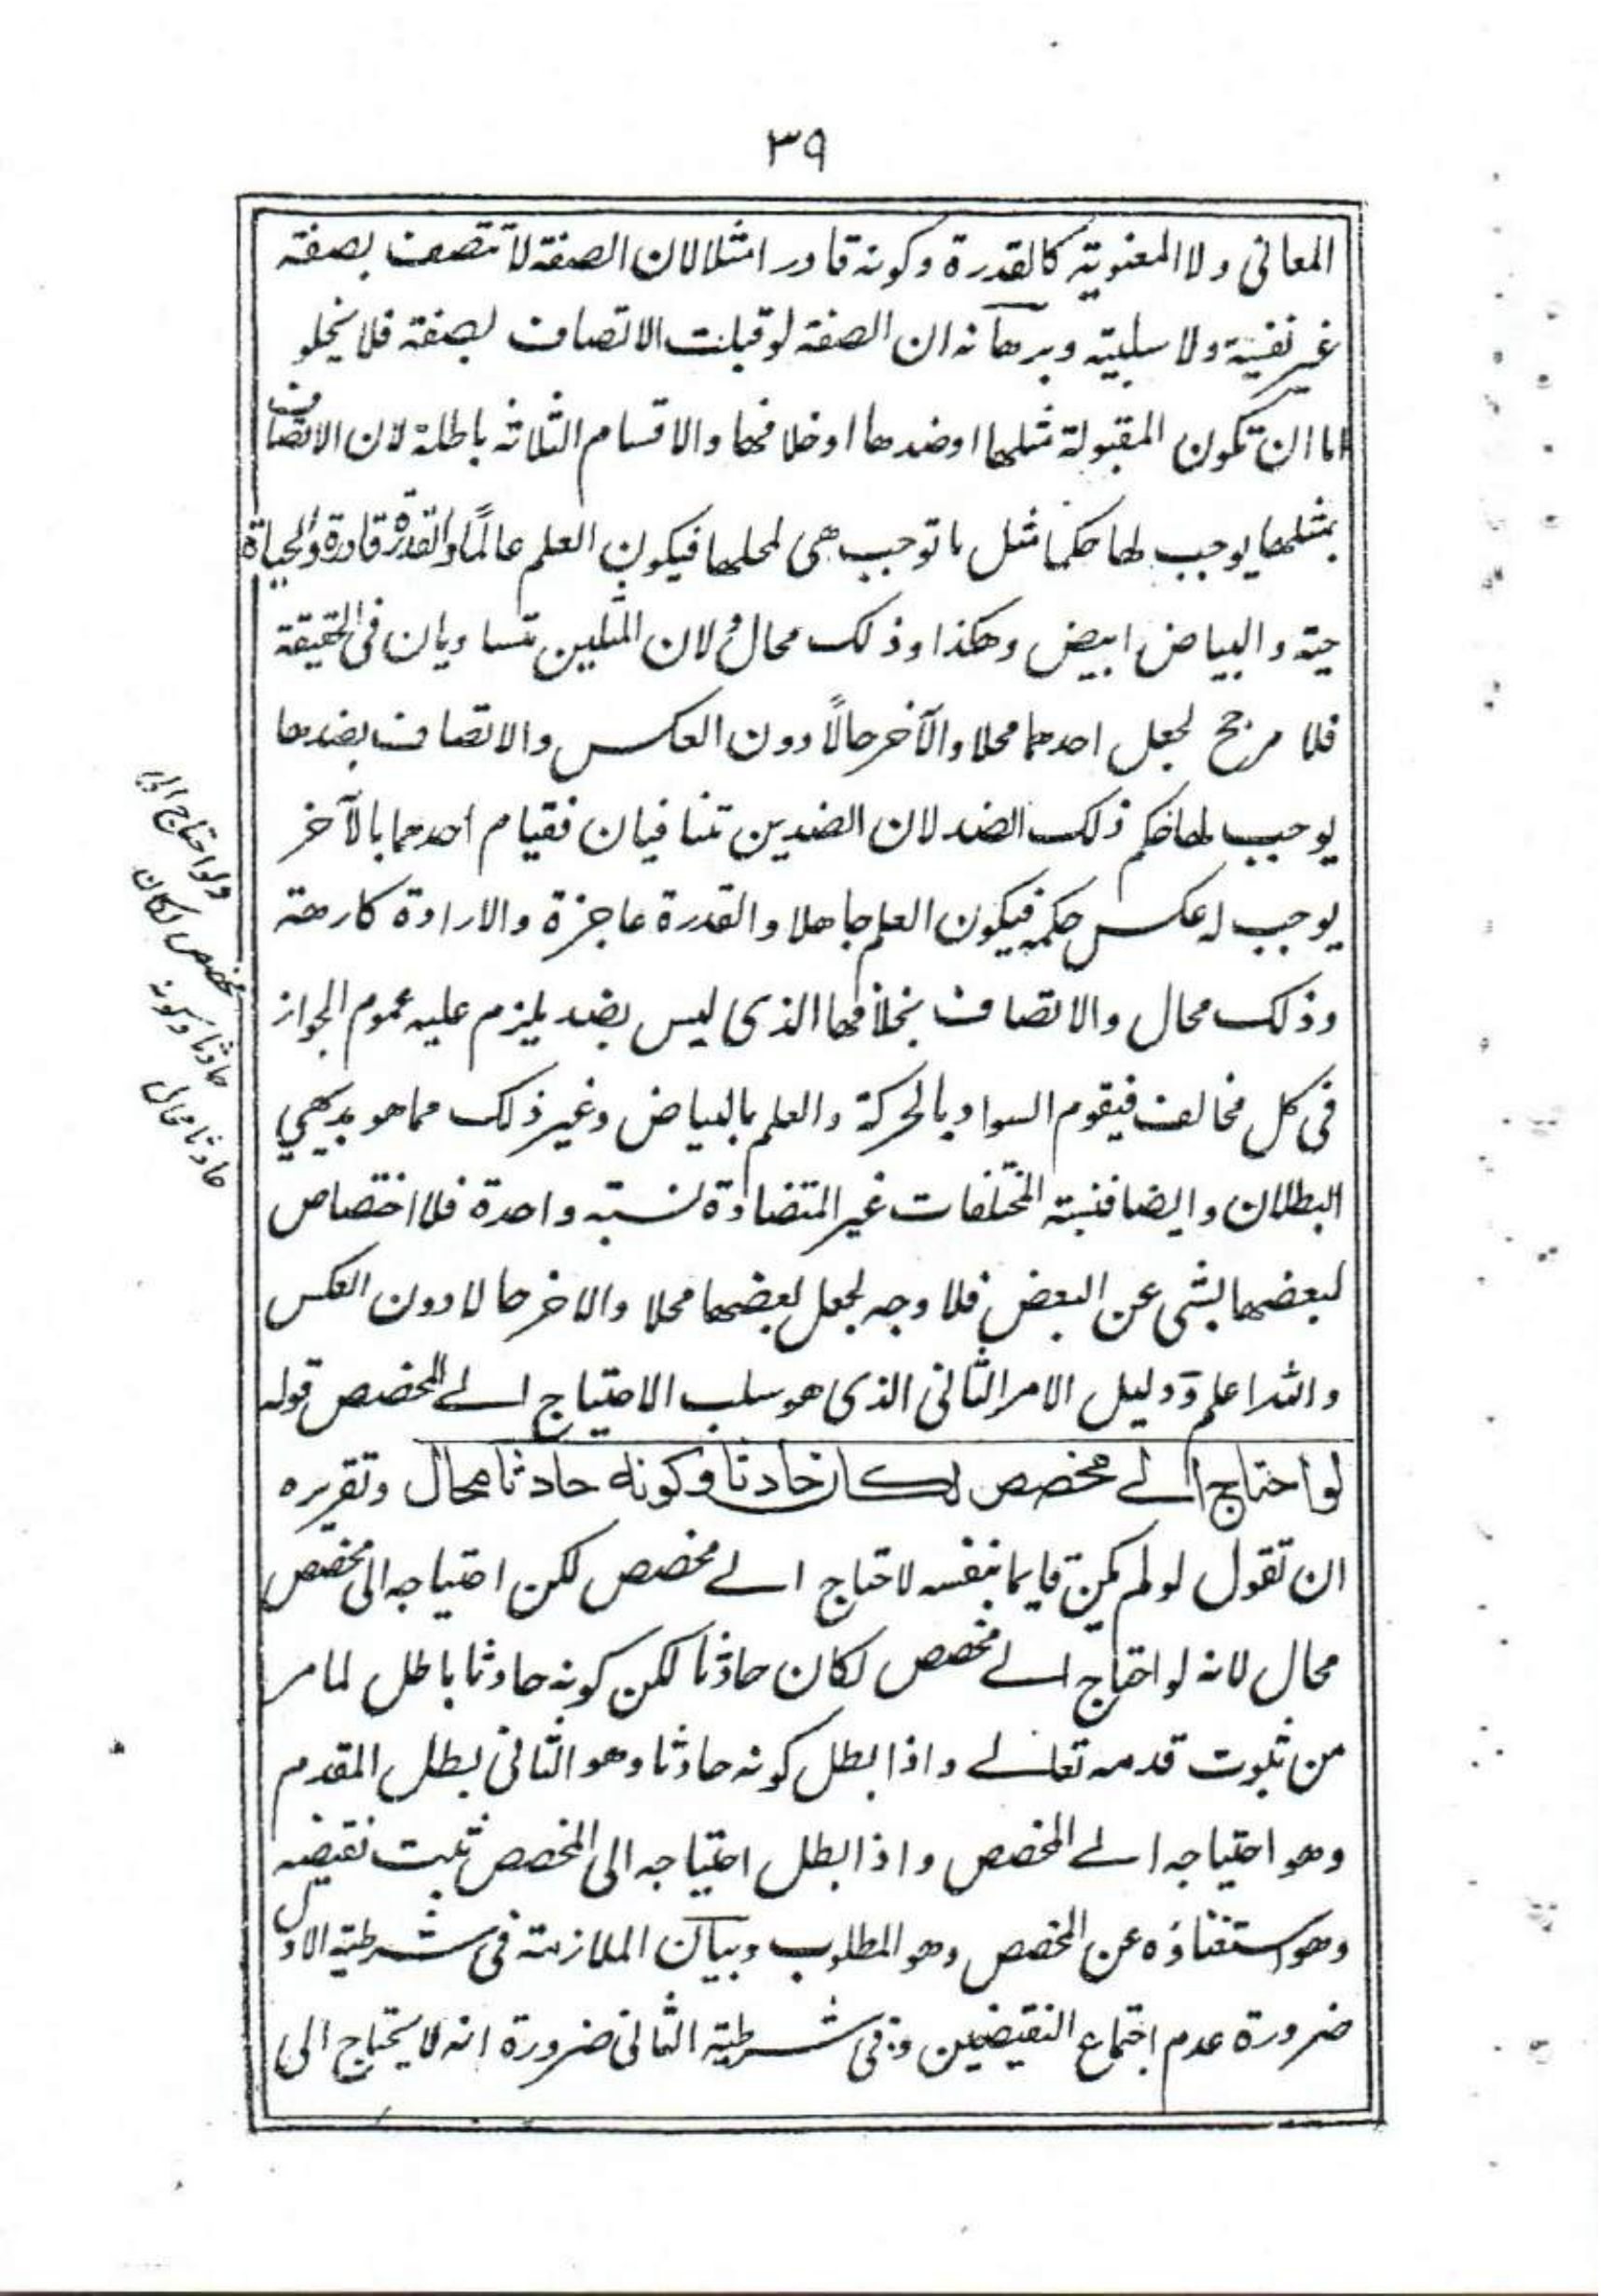 ٣٩
المعانى ولا المعنوية كالقدرة وكونه قادر امثلا لان الصفة لا تتصف بصفة
غير نفسية ولا سلبية وبرهانه ان الصفة لو قبلت الاتصاف بصفة فلا يخلو
اما ان تكون المقبولة مثلها او ضدها او خلافها والاقسام الثلاثة باطلة لان الاتصاف
بمثلها يوجب لها حكما مثل ما توجب هى لمحلها فيكون العلم عالمًا والقدرة قادرة والحياة
حية والبياض ابيض وهكذا وذلك محالٌ لان المثلين تتساويان فى الحقيقة
فلا مرجح لجعل احدهما محلا والآخر حالًا دون العكس والاتصاف بضدها
يوجب لها حكم ذلك الضد لان الضدين تتنافيان فقيام احدهما بالآخر
يوجب له عكس حكمه فيكون العلم جاهلا والقدرة عاجزة والارادة كارهة
وذلك محال والاتصاف بخلافها الذى ليس بضد يلزم عليه عموم الجواز
فى كل مخالف فيقوم السواد بالحركة والعلم بالبياض وغير ذلك مما هو بديهي
البطلان وايضا فنسبة المختلفات غير المتضادة نسبة واحدة فلا اختصاص
لبعضها بشى عن البعض فلا وجه لجعل بعضها محلا والاخر حالا دون العكس
والله اعلم ودليل الامر الثانى الذى هو سلب الاحتياج الے المخصص قوله
لو احتاج الے مخصص لكان حادثا وكونه حادثا محال وتقريره
ان تقول لو لم يكن قايما بنفسه لاحتاج الے مخصص لكن احتياجه الى مخصص
محال لانه لو احتاج الے مخصص لكان حادثا لكن كونه حادثا باطل لما مر
من ثبوت قدمه تعالے واذا بطل كونه حادثا وهو الثانى بطل المقدم
وهو احتياجه الے المخصص واذا بطل احتياجه الى المخصص ثبت نقيضه
وهو استغناؤه عن المخصص وهو المطلوب وبيان الملازمة فى شرطية الاول
ضرورة عدم اجتماع النقيضين وفى شرطية الثانى ضرورة انه لا يحتاج الى
ولو احتاج الى
مخصص لكان
حادثا وكونه
حادثا محال